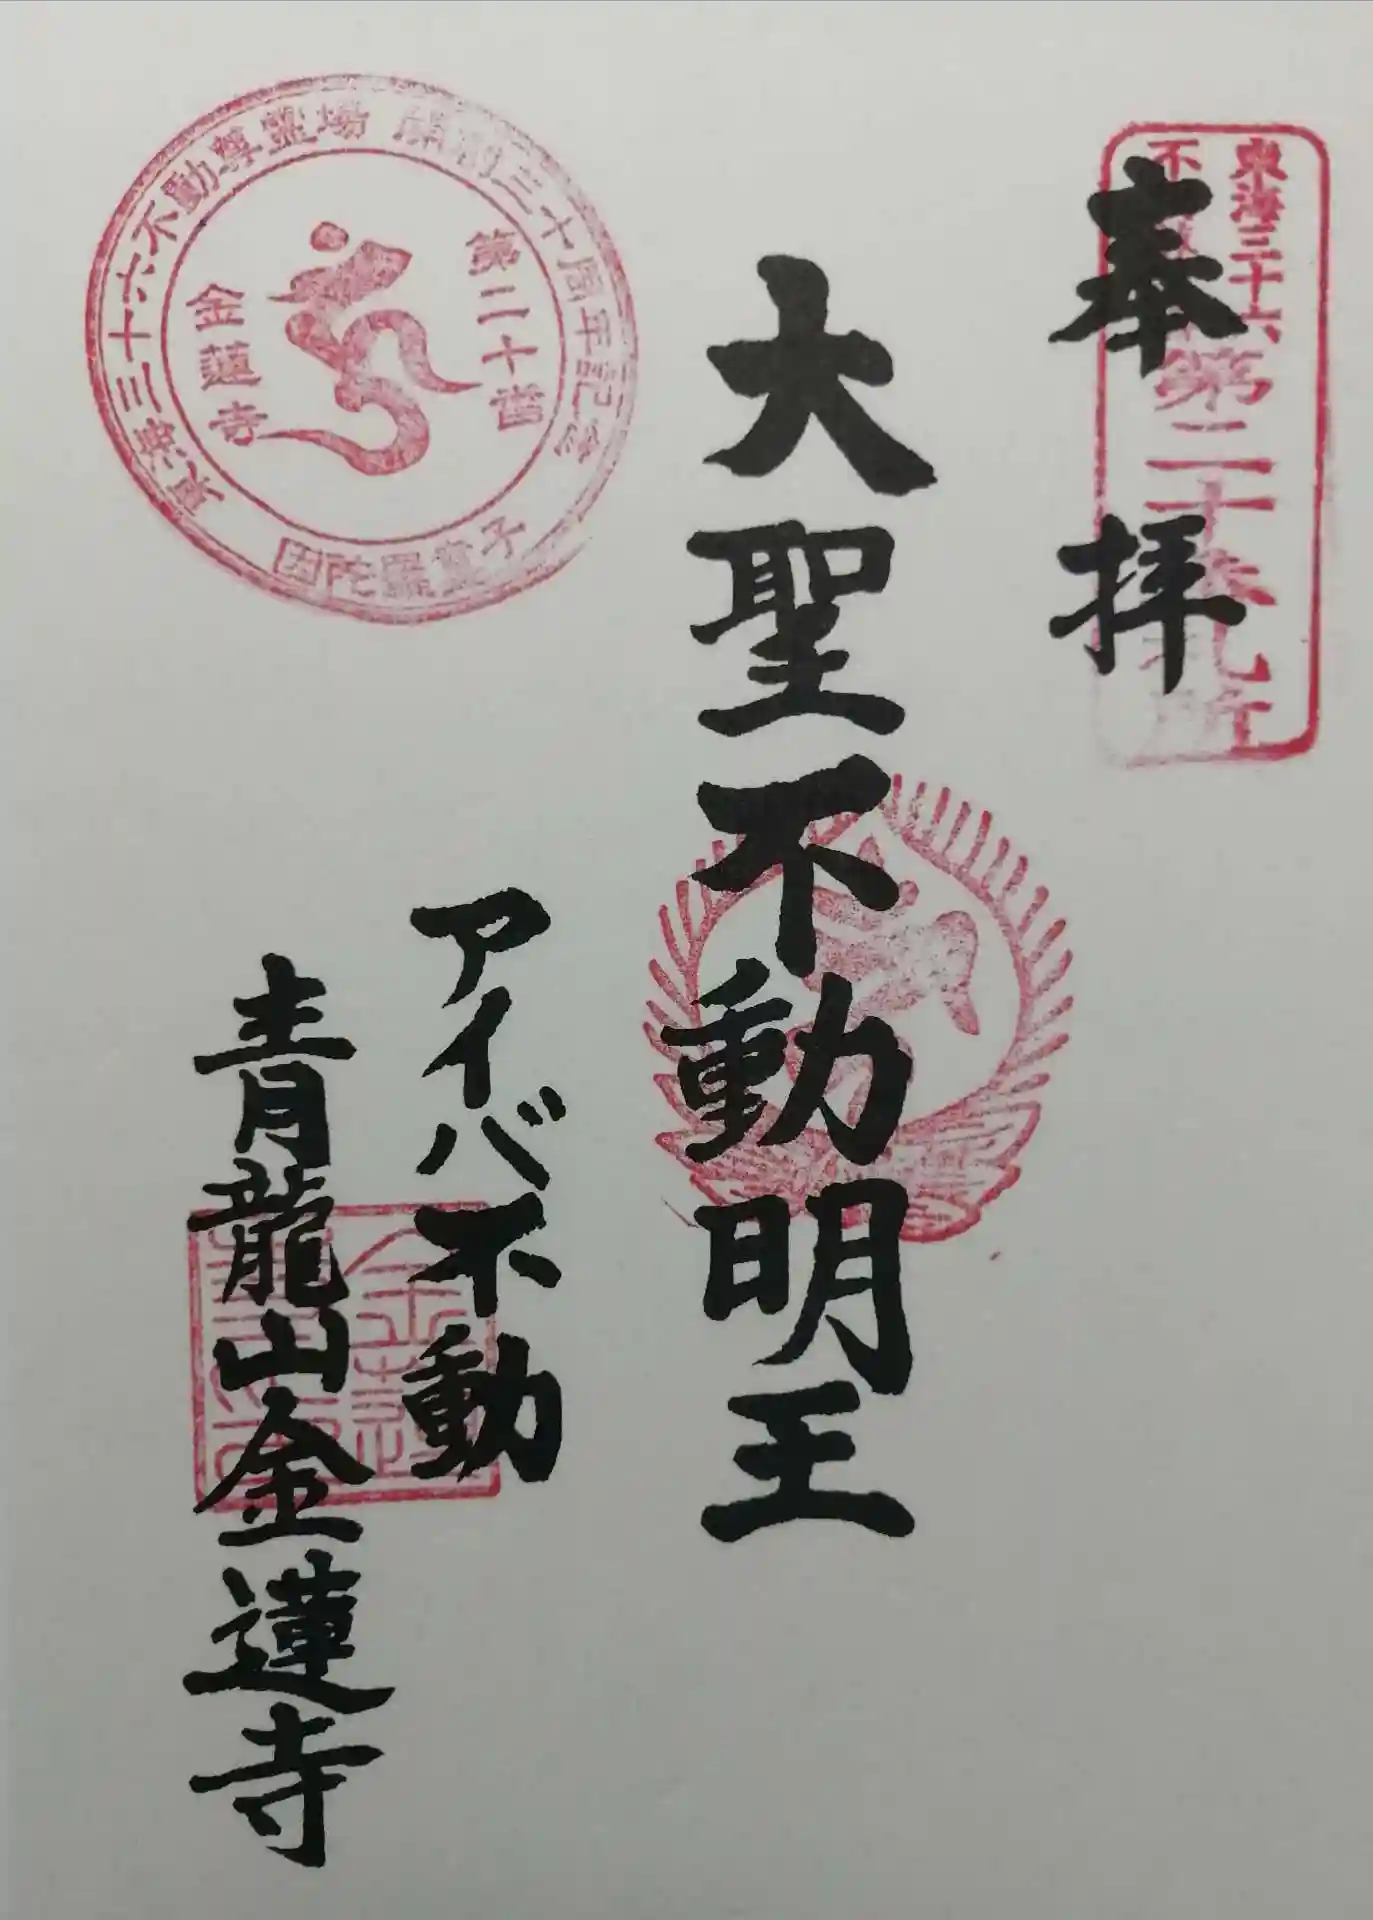 奉拝
東海三十六
不
第二十番札所
大聖不動明王
アイバ不動
青龍山金蓮寺
東海三十六不動尊霊場 開創三十周年記念
第二十番
金蓮寺
因陀羅童子
金蓮